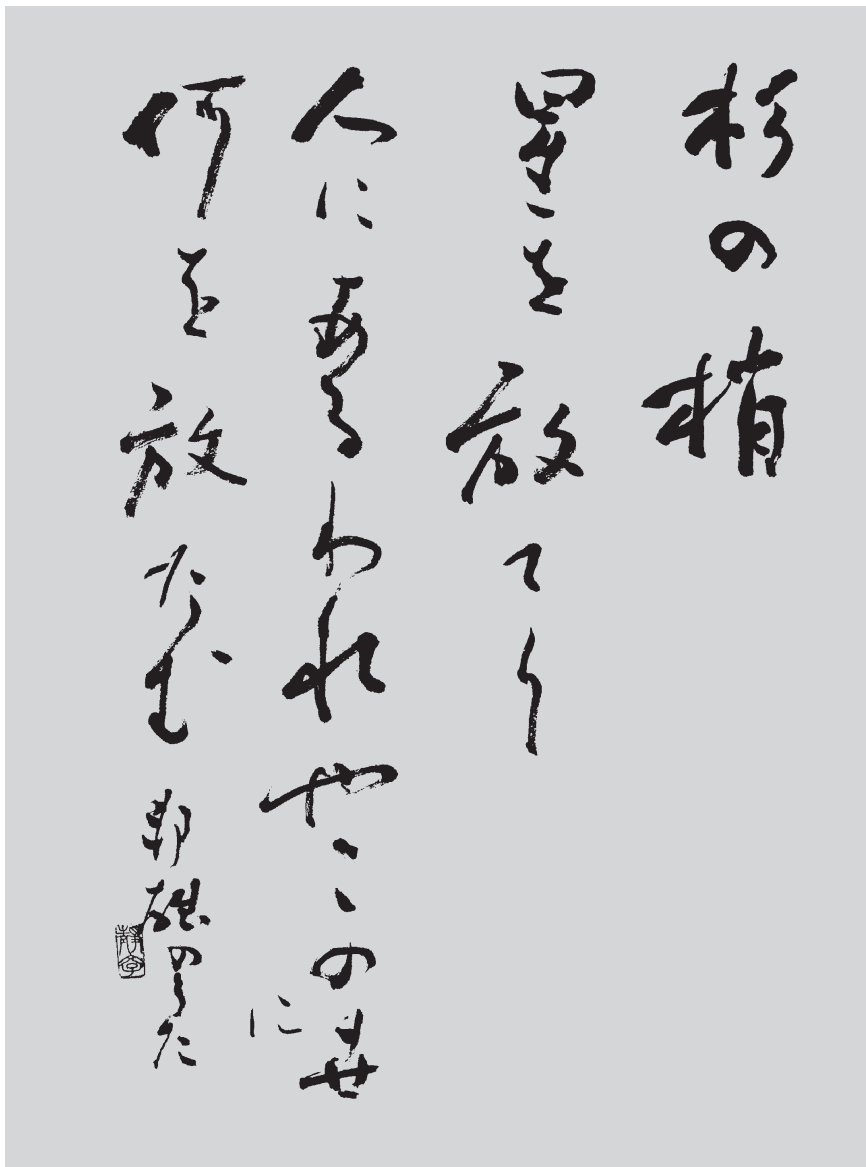 杉の梢
星を放てり
人にあるわれやこの世に
何を放たむ
邦雄のうた
靜